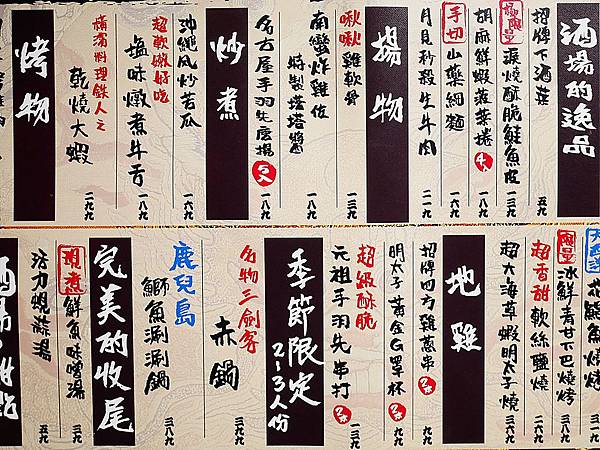 酒場的逸品
招牌下酒菜
五九
極限量
淚燒酥脆鮭魚皮
一三九
胡麻鮮蝦菠菜捲
4入
一八九
手切
山藥細麵
一六九
月見秒殺生牛肉
二一九
揚物
啾啾雞軟骨
一三九
南蠻炸雞佐
特製塔塔醬
一八九
名古屋手羽先唐揚
5入
一八九
炒煮
沖繩風炒苦瓜
一九九
超軟嫩好吃
塩味燉煮牛舌
一八九
橫濱料理鉄人之
乾燒大蝦
一九九
烤物
三一九
限量
冰鮮青甘下巴燒烤
三八九
超香甜
軟絲鹽燒
二六九
超大海草蝦明太子燒
三六九
地雞
招牌四方雞蔥串
2本
九九
明太子黃金G罩杯
2本
九九
超級酥脆
元祖手羽先串打
2本
一三九
季節限定
2~3人份
名物三劍客
赤鍋
三八九
鹿兒島
鰤魚涮涮鍋
三八九
完美的收尾
現煮
鮮魚味噌湯
三九
活力蜆蒜湯
五九
酒場